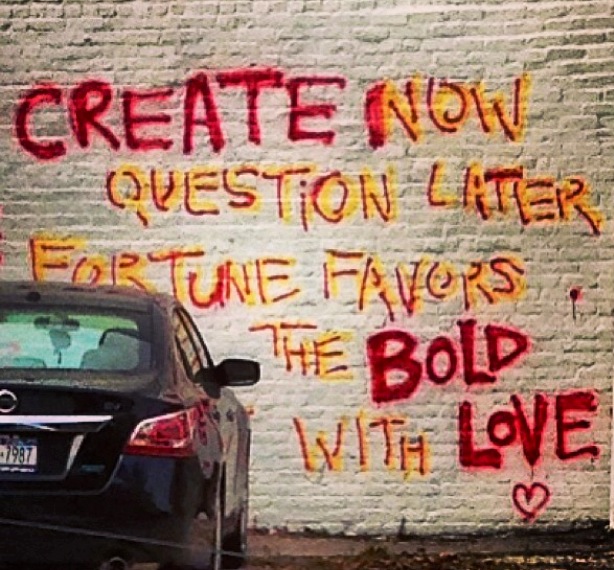 CREATE NOW
QUESTION LATER
FORTUNE FAVORS
THE BOLD
WITH LOVE
7987